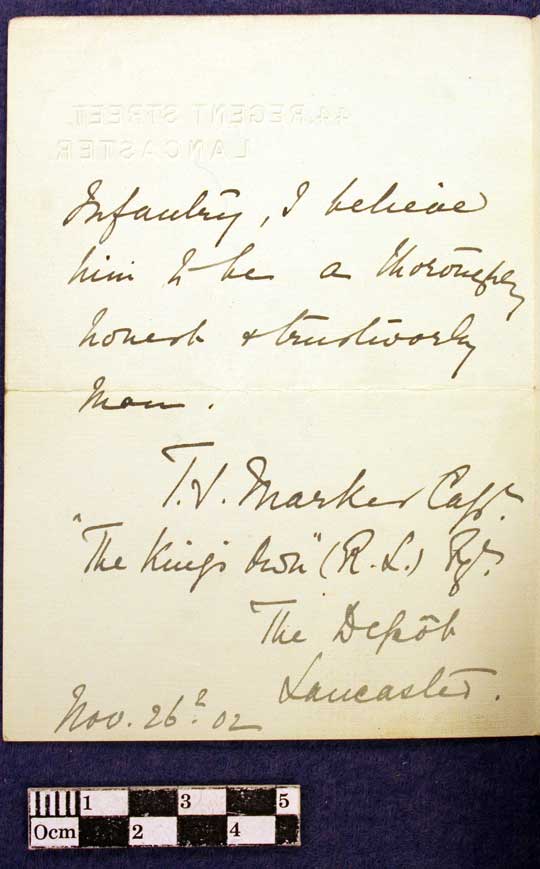 44, REGENT STREET,
LANCASTER.
Infantry, I believe
him to be a thoroughly
honest & trustworthy
man.
T.J. Marker Capt.
"The King's Own" (R. L.) Rgt.
The Depôt
Lancaster.
Nov. 26th 02
0cm 1 2 3 4 5